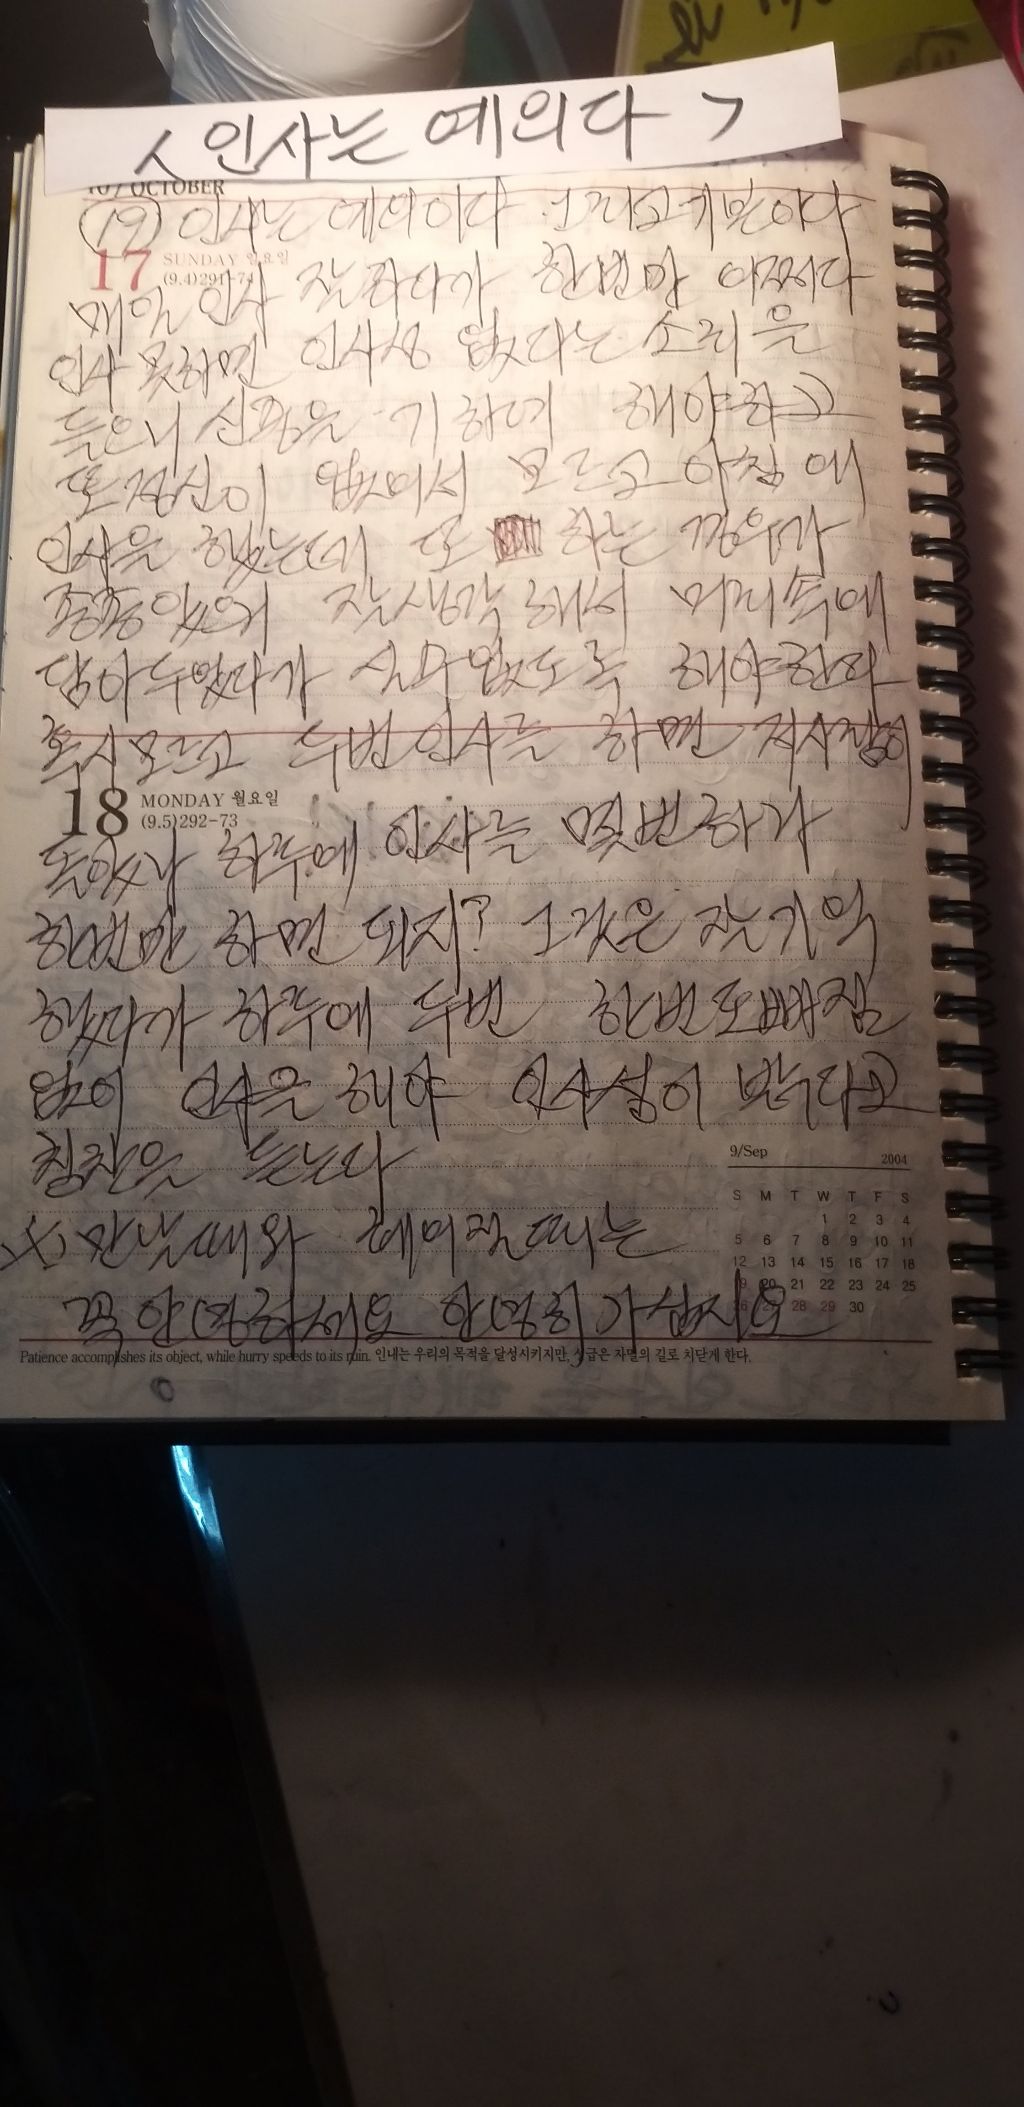 < 인사는 예의다 >
10 / OCTOBER
(19) 인사는 예의이다 그리고 기본이다
17 SUNDAY 일요일
(9.4)291-74
매일 인사 잘하다가 한번만 어쩌다
인사 못하면 인사성 없다는 소리을
들으니 신중을 기하여 해야하고
또 정신이 없어서 모르고 아침에
인사을 했는데 또 하는 경우가
종종있으니 잘생각해서 머리속에
담아두었다가 실수없도록 해야한다
혹시모르고 두번인사를 하면 저사람이
18 MONDAY 월요일
(9.5)292-73
돌았나 하루에 인사를 몇번하가
한번만 하면 되지? 그것은 잘기억
했다가 하루에 두번 한번도빠짐
없이 인사을 해야 인사성이 밝다고
칭찬을 듣는다
9/Sep 2004
S M T W T F S
1 2 3 4
5 6 7 8 9 10 11
12 13 14 15 16 17 18
20 21 22 23 24 25
28 29 30
만날때와 헤어질때는
꼭 안녕하세요 안녕히가십시요
Patience accomplishes its object, while hurry speeds to its ruin. 인내는 우리의 목적을 달성시키지만, 성급은 자멸의 길로 치닫게 한다.